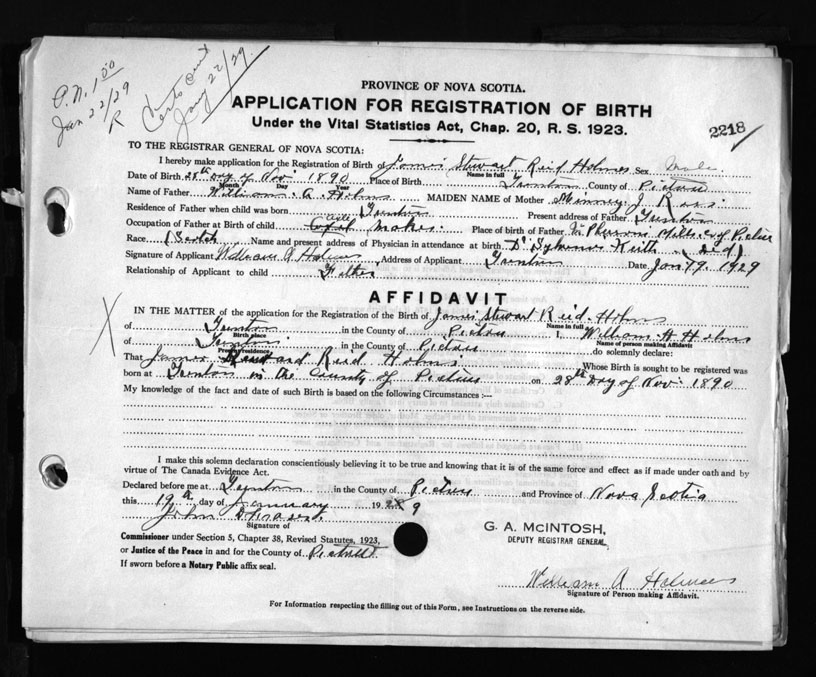 P.N. 1.00
Jan 22/29
R
Certs Sent
Jany 22/29.
PROVINCE OF NOVA SCOTIA.
APPLICATION FOR REGISTRATION OF BIRTH
Under the Vital Statistics Act, Chap. 20, R. S. 1923.
2218
TO THE REGISTRAR GENERAL OF NOVA SCOTIA:
I hereby make application for the Registration of Birth of James Stewart Reid Holmes Sex Male
Name in full
Date of Birth 28th Day of Nov: 1890 Place of Birth Trenton County of Pictou
Month Day Year
Name of Father William A. Holms MAIDEN NAME of Mother J. Ross:
Residence of Father when child was born Trenton Present address of Father Trenton
Occupation of Father at Birth of child Axle maker: Place of birth of Father Mc Phersons Mills. Co of Pictou
Race (Scotch Name and present address of Physician in attendance at birth Dr Keith (Dcd)
Signature of Applicant William A Holmes Address of Applicant Trenton Date Jany 19. 1929
Relationship of Applicant to child Father
AFFIDAVIT
IN THE MATTER of the application for the Registration of the Birth of James Stewart Reid. Holms
Name in full
of Trenton in the County of Pictou I, William A Holms
Birth place Name of person making Affidavit
of Trenton: in the County of Pictou do solemnly declare:
Present residence
That James Reid Holms Whose Birth is sought to be registered was
born at Trenton in the County of Pictou on 28th Day of Nov: 1890
My knowledge of the fact and date of such Birth is based on the following Circumstances :—
I make this solemn declaration conscientiously believing it to be true and knowing that it is of the same force and effect as if made under oath and by
virtue of The Canada Evidence Act.
Declared before me at Trenton in the County of Pictou and Province of Nova Scotia
this 19th day of January 1929
John
Signature of
Commissioner under Section 5, Chapter 38, Revised Statutes, 1923,
or Justice of the Peace in and for the County of Pictou
If sworn before a Notary Public affix seal.
G. A. McINTOSH,
DEPUTY REGISTRAR GENERAL
William A Holmes
Signature of Person making Affidavit.
For Information respecting the filling out of this Form, see Instructions on the reverse side.